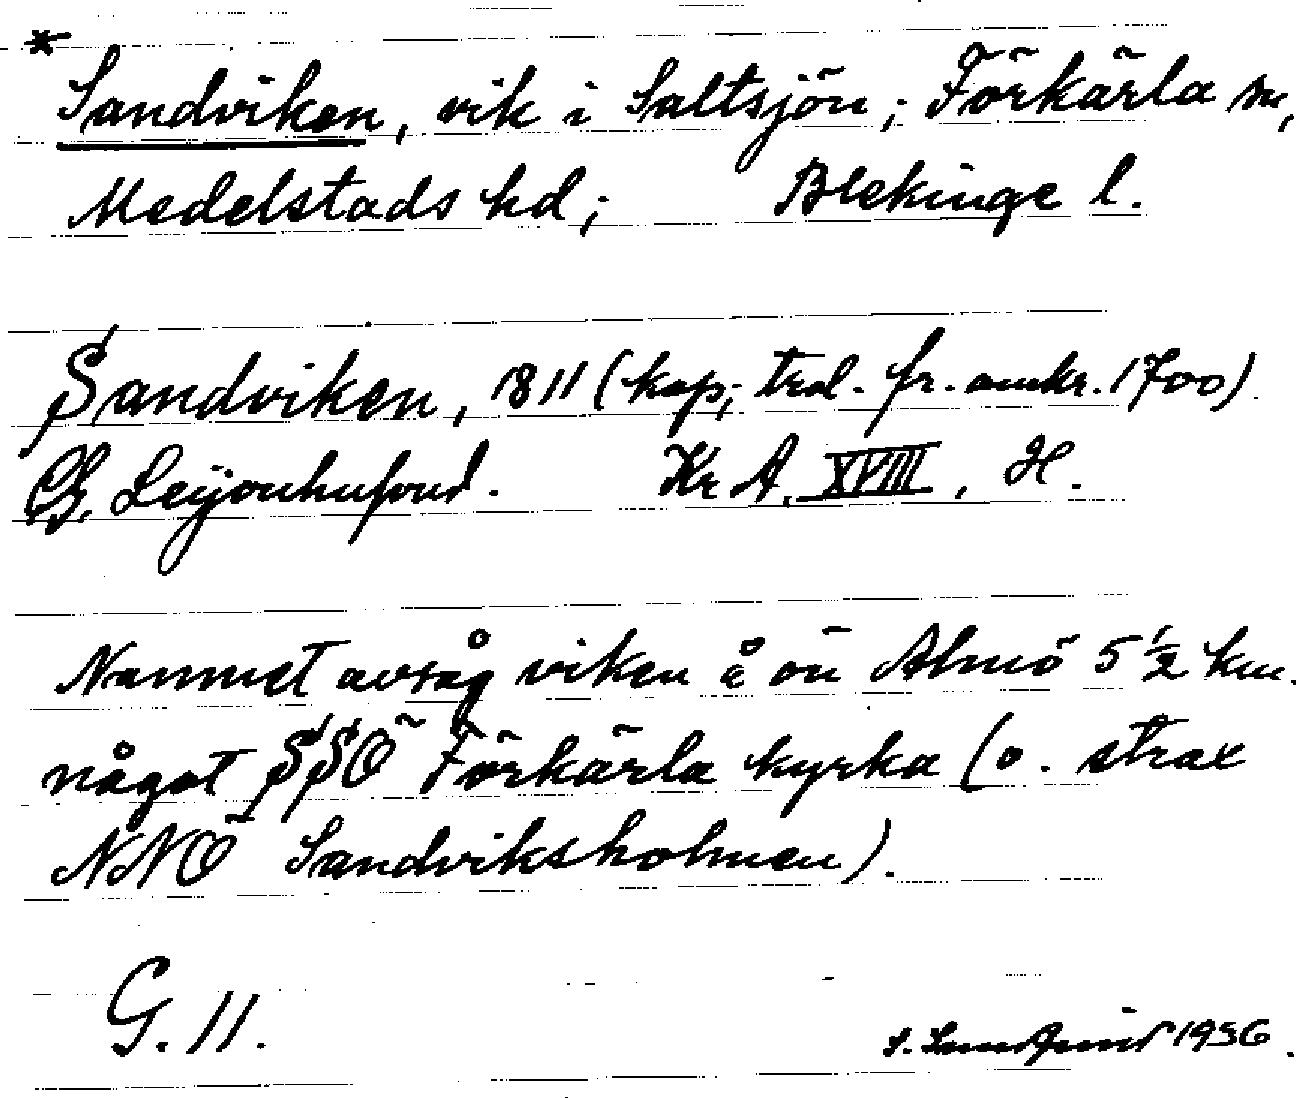 * Sandviken, vik i Saltsjön; Förkärla sn,
Medelstads hd; Blekinge l.
Sandviken, 1811 (kop; trol. fr. omkr. 1700)
G. Leijonhufvud. Kr A. XVIII, H.
Namnet avsåg viken å ön Almö 5 1/2 km.
något SSÖ Förkärla kyrka (o. strax
NNÖ Sandviksholmen).
G. 11.
1956.